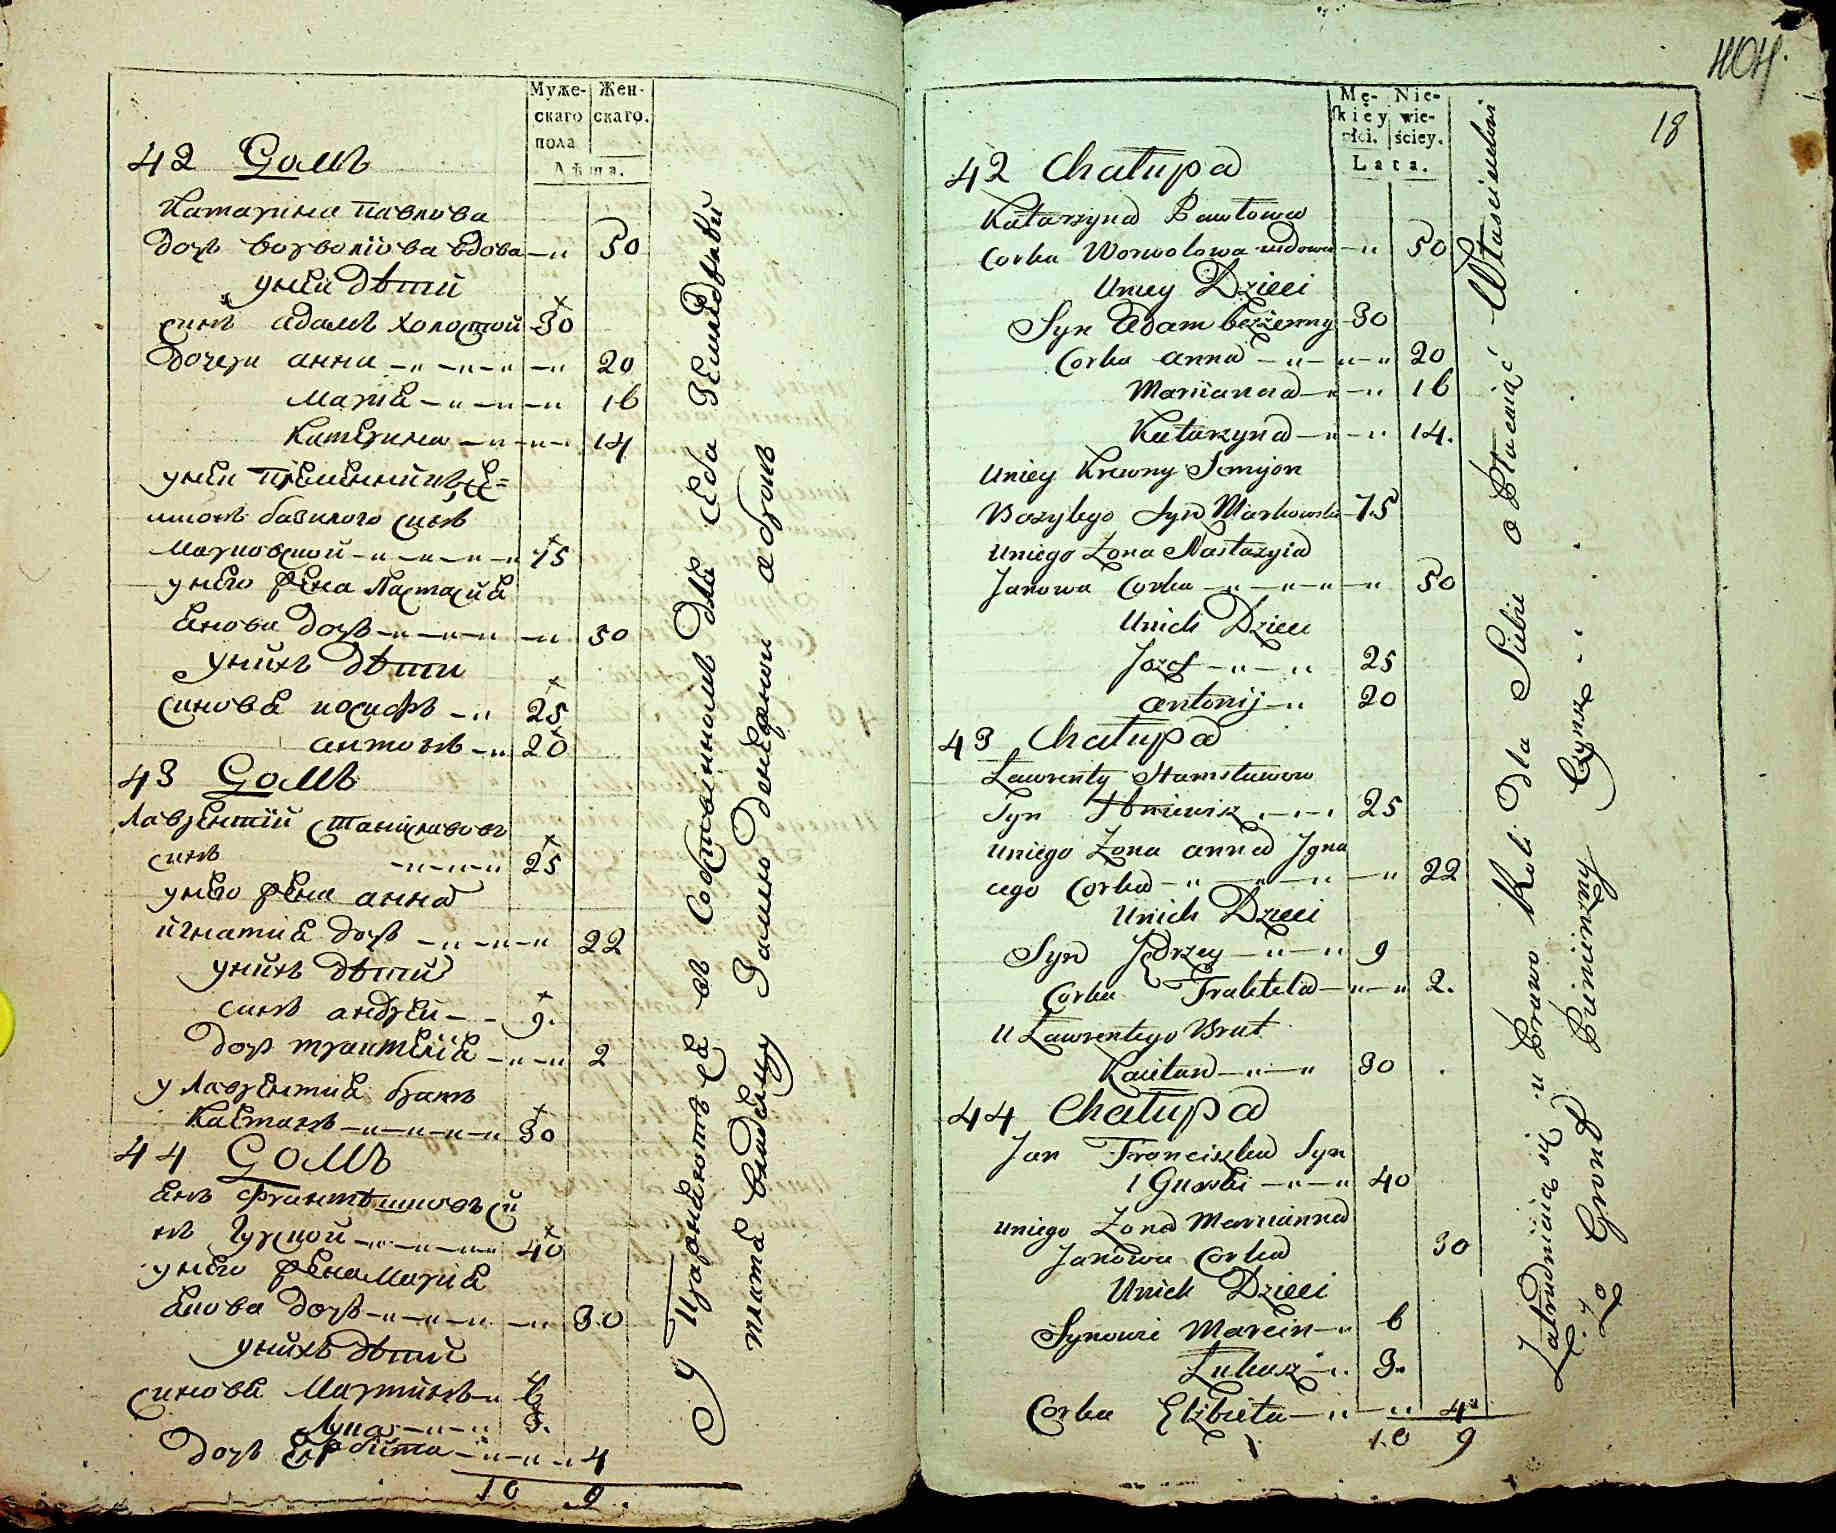 Муже-
скаго
пола
Жен-
скаго.
Лѣта.
42 Домъ
Катарина Павлова
дочь Ворволïова вдова -"- 50
у нея дѣти
синъ Адамъ холостой 30
дочери Анна -"- -"- 20
Марïя -"- -"- 16
Катерина -"- -"- 14
у неи племенникъ Се=
мïонъ Базилого синъ
Марковской -"- -"- 75
у него жена Настасия
Янова дочь -"- -"- 50
у нихъ дѣти
синовя иосифъ -" 25
антонъ -" 20
43 Домъ
Лаврентïй Станиславовъ
синъ -"-"-" 25
у него жена анна
игнатия дочь -"-"-" 22
у нихъ дѣти
синъ андрей - - 9.
дочь трактелïя -"-" 2
у Лаврентия братъ
Каетанъ -"-"-"-" 30
44 Домъ
Янъ Франтишковъ си
нъ Гурской -"-"-" 40
у него жена Марïя
Янова дочь -"-"-" 30
у нихъ дѣти
синовя Мартинъ -" 6
Лукаш -"-" 3.
дочь Ержбита -"-"-" 4
10 9.
Упражняются въ собственномъ для себя земледелïи
платя владелцу замлю денежной оброкъ
404.
18
Mę-
skiey
płci.
Nie-
wie-
ściey.
Lata.
42 Chałupa
Katarzyna Pawłowa
Corka Worwolowa wdowa -" 50
Uniey Dzieci
Syn Adam bezżenny 30
Corka anna -"-"-" 20
Marianna -"-" 16
Katarzyna -"-" 14.
Uniey Krewny Semyon
Bazylego Syn Markowski 75
Uniego Zona Nastazyia
Janowa Corka -"-"-" 50
Unich Dzieci
Jozef -"-" 25
antonij -" 20
43 Chałupa
Lawrenty Stanisławow
Syn -"-" 25
Uniego Zona anna Jgna
cego Corka -"-"-" 22
Unich Dzieci
Syn Jędrzey -"-" 9
Corka Traktela -"-" 2.
U Lawrentego Brat
Kaietan -"-" 30
44 Chałupa
Jan Franciszka Syn
Gurski -"-" 40
Uniego Zona Marianna
Janowa Corka 30
Unich Dzieci
Synowie Marcin -" 6
Łukasz -". 3.
Corka Elżbieta -"-" 4
10 9
Zatrudniaią się u Prawo Roli Dla Siebie a Płaciąc Włascicielowi
Za Gront Pienienzny Czynsz